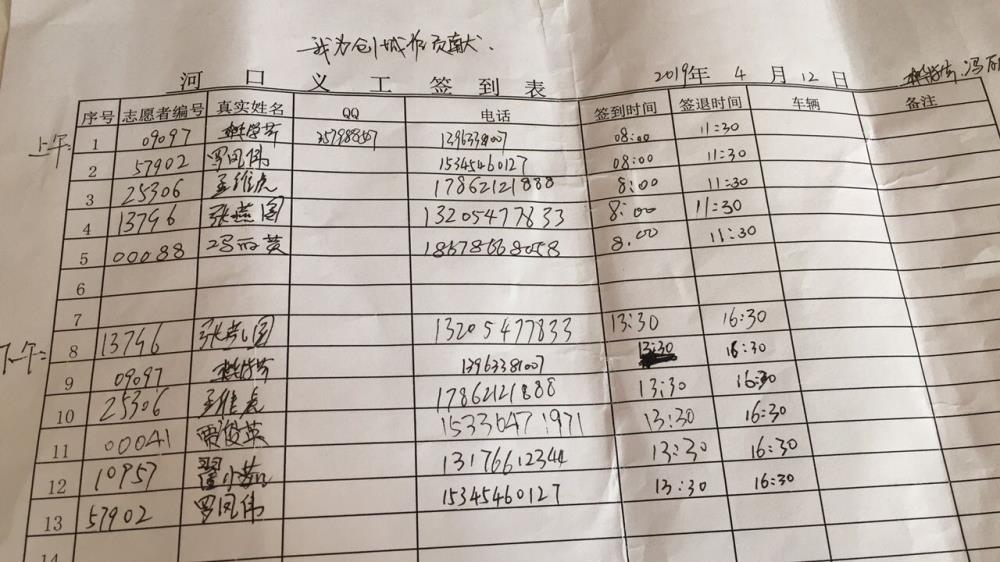 我为创城作贡献.
河口义工签到表 2019年 4月 12日
序号 志愿者编号 真实姓名 QQ 电话 签到时间 签退时间 车辆 备注
上午:
1 09097 13963381007 08:00 11:30
2 57902 罗凤伟 15345460127 08:00 11:30
3 25306 孟维虎 17862121888 8:00 11:30
4 13796 张燕图 13205477833 8:00 11:30
5 00088 冯丽英 18678668058 8.00 11:30
6
7
下午:
8 13796 张燕图 13205477833 13:30 16:30
9 09097 13963381007 13:30 16:30
10 25306 孟维虎 17862121888 13:30 16:30
11 00041 贾俊英 15336471971 13:30 16:30
12 10957 13176612344 13:30 16:30
13 57902 罗凤伟 15345460127 13:30 16:30
14